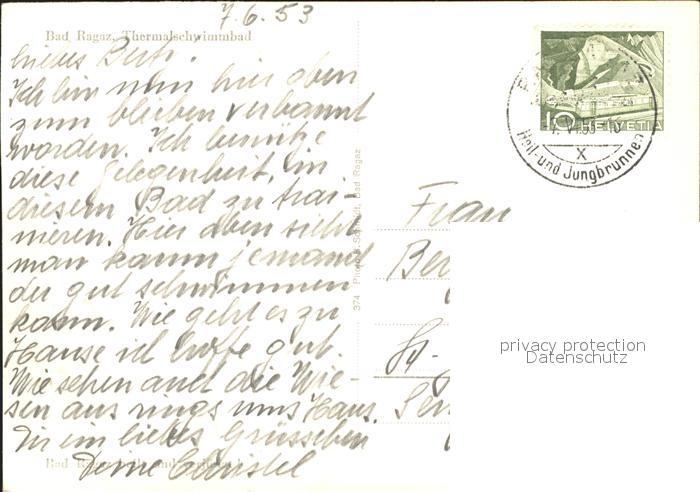 7.6.53
Bad Ragaz, Thermalschwimmbad
liebes Berti.
Ich bin nun hier oben
zum bleiben verbannt
worden. Ich benütze
diese Gelegenheit, im
diesem Bad zu trai-
nieren. Hier oben sieht
man kaum jemand
der gut schwimmen
kann. Wie geht es zu
Hause ich hoffe gut.
Wie sehen auch die Wie-
sen aus rings ums Haus.
Dir ein liebes Grüsschen
Deine Christel
Bad Ragaz
374 Photo Bad Ragaz
10 HELVETIA
Heil- und Jungbrunnen
X
Frau
privacy protection
Datenschutz